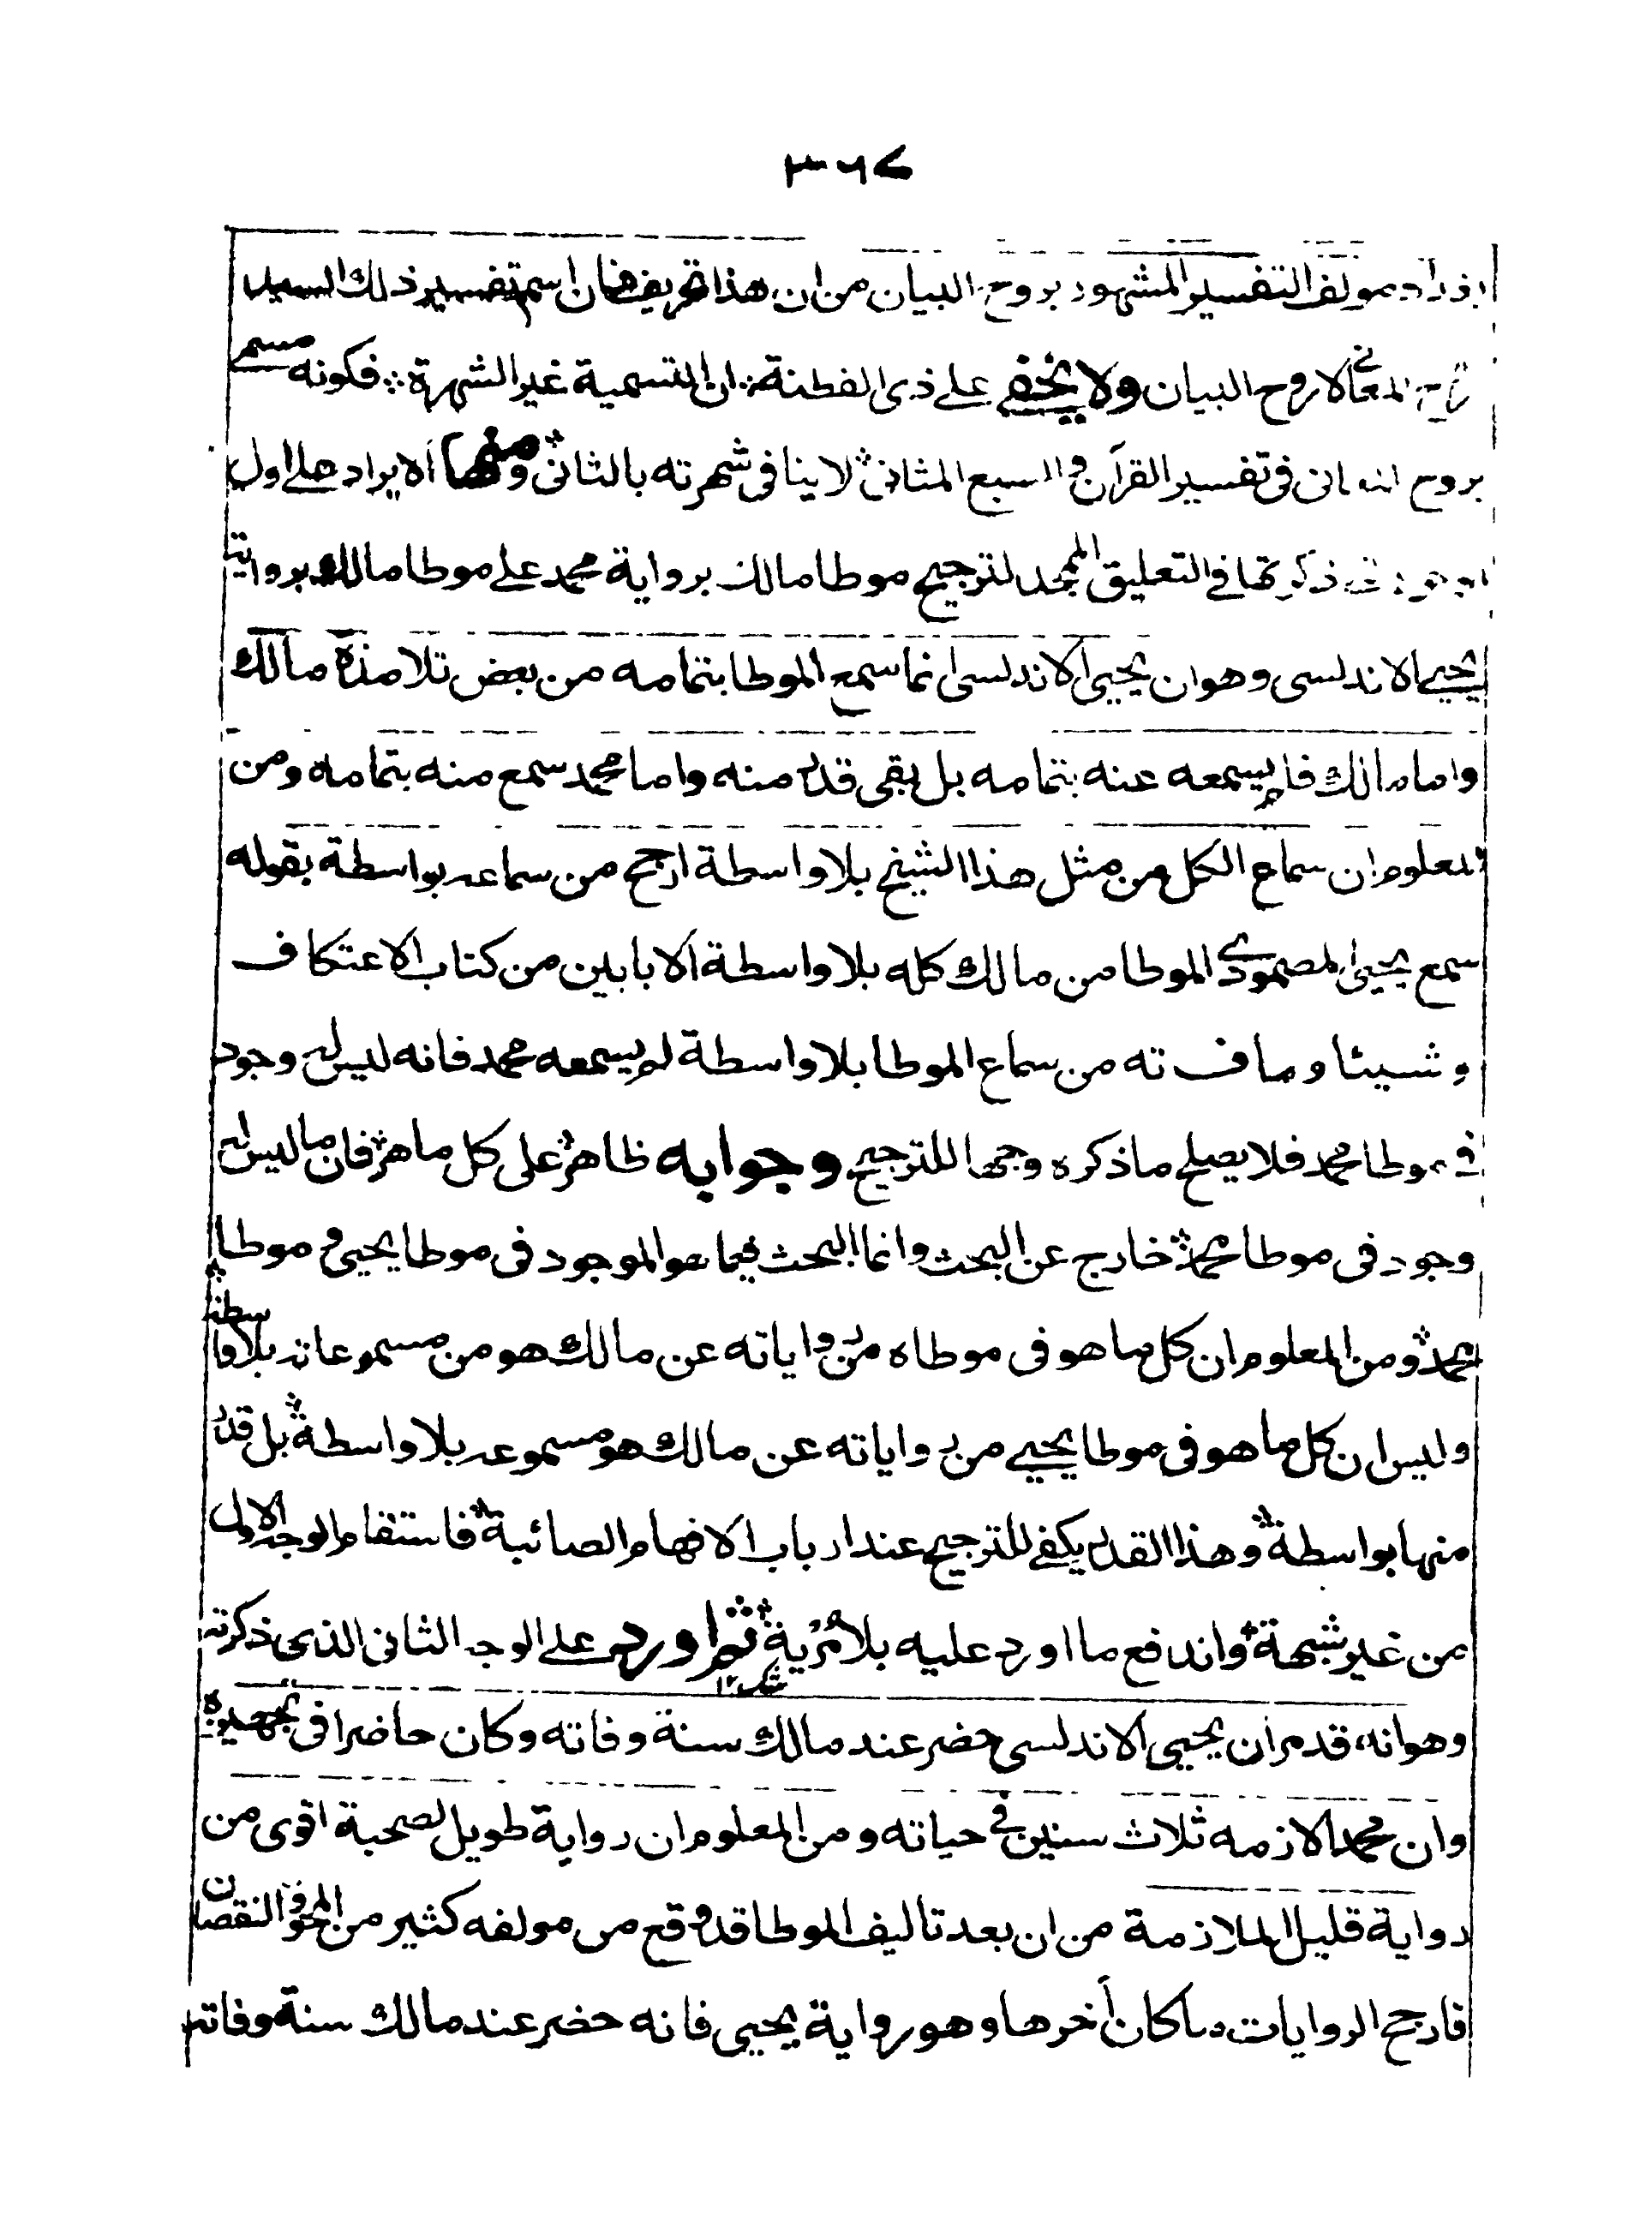 ٣٦٧
مولف التفسير المشهور بروح البيان من ان هذا تحريف فان اسم تفسير ذلك السيد
روح المعاني لا روح البيان ولا يخفى على ذى الفطنة ان التسمية غير الشهرة فكونه مسمى
بروح المعانى فى تفسير القرآن والسبع المثانى لا ينافى شهرته بالثانى ومنها الايراد على اول
ذكرتها فى التعليق الممجد لترجيح موطا مالك برواية محمد على موطا مالك برواية
يحيى الاندلسى وهو ان يحيى الاندلسى انما سمع الموطا بتمامه من بعض تلامذة مالك
واما مالك فلم يسمعه عنه بتمامه بل بقى قدر منه واما محمد سمع منه بتمامه ومن
المعلوم ان سماع الكل من مثل هذا الشيخ بلا واسطة ارجح من سماعه بواسطة بقوله
سمع يحيى المصمودى الموطا من مالك كله بلا واسطة الا بابين من كتاب الاعتكاف
وشيئا وما فاته من سماع الموطا بلا واسطة لم يسمعه محمد فانه ليس له وجود
فى موطا محمد فلا يصلح ما ذكره وجها للترجيح وجوابه ظاهر على كل ماهر فان ما ليس له
وجود فى موطا محمد خارج عن البحث وانما البحث فيما هو الموجود فى موطا يحيى وموطا
محمد ومن المعلوم ان كل ما هو فى موطاه من رواياته عن مالك هو من مسموعاته بلا واسطة
وليس ان كل ما هو فى موطا يحيى من رواياته عن مالك هو مسموعه بلا واسطة بل قدر
منها بواسطة وهذا القدر يكفى للترجيح عند ارباب الافهام الصائبة فاستقام الوجه الاول
من غير شبهة واندفع ما اورد عليه بلا مرية ثم اورد على الوجه الثانى الذى ذكرته
شك ١٢
وهو انه قد مر ان يحيى الاندلسى حضر عند مالك سنة وفاته وكان حاضرا فى تجهيزه
وان محمدا لازمه ثلاث سنين فى حياته ومن المعلوم ان رواية طويل الصحبة اقوى من
رواية قليل الملازمة من ان بعد تاليف الموطا قد وقع من مولفه كثير من المحو والنقصان
فارجح الروايات ما كان أخرها وهو رواية يحيى فانه حضر عند مالك سنة وفاته